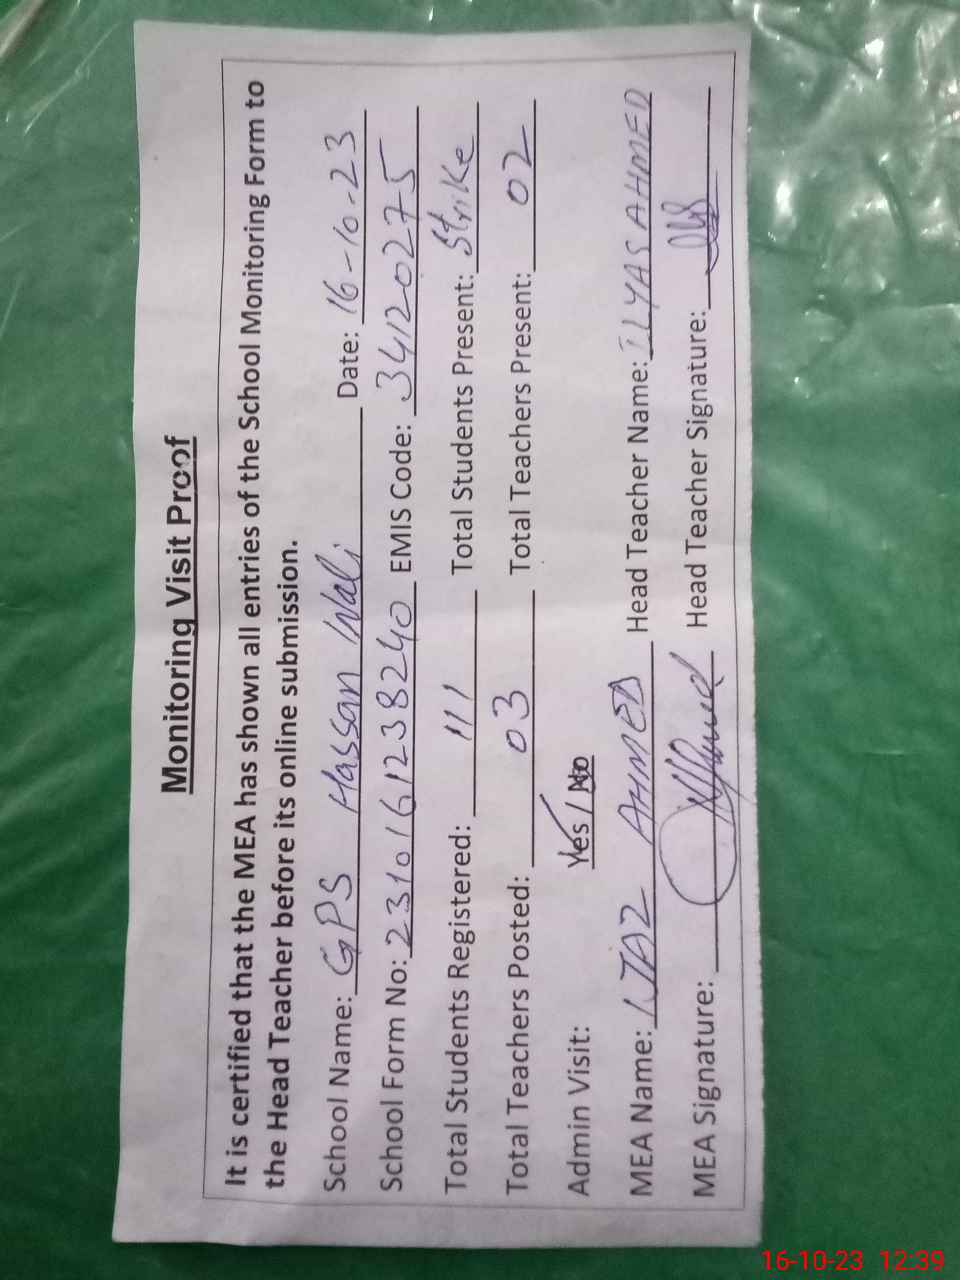 Monitoring Visit Proof
It is certified that the MEA has shown all entries of the School Monitoring Form to
the Head Teacher before its online submission.
School Name: GPS Hassan Wali Date: 16-10-23
School Form No: 2310161238240 EMIS Code: 34120275
Total Students Registered: 111 Total Students Present: Strike
Total Teachers Posted: 03 Total Teachers Present: 02
Admin Visit: Yes / No
MEA Name: IJAZ AHMED Head Teacher Name: ILYAS AHMED
MEA Signature: Head Teacher Signature:
16-10-23 12:39